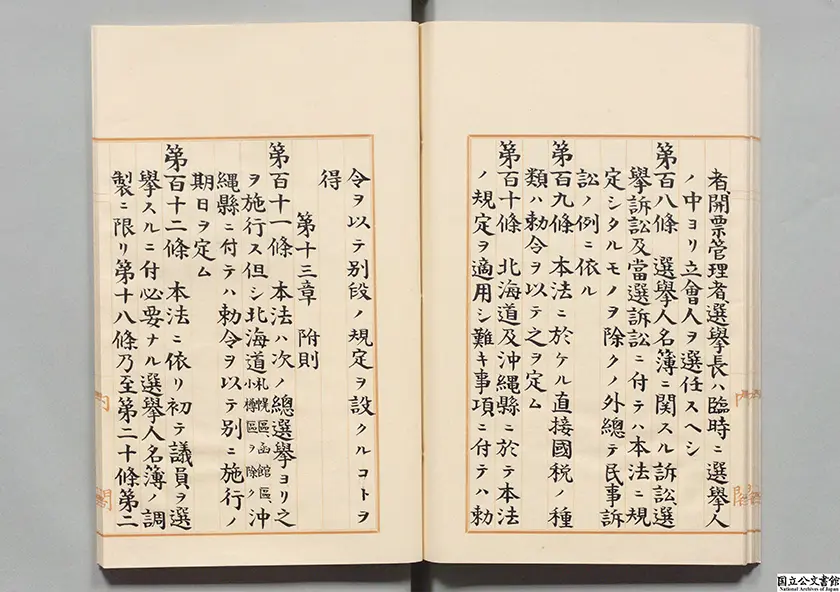 者開票管理者選擧長ハ臨時ニ選擧人
ノ中ヨリ立會人ヲ選任スヘシ
第百八條 選擧人名簿ニ関スル訴訟選
擧訴訟及當選訴訟ニ付テハ本法ニ規
定シタルモノヲ除クノ外總テ民事訴
訟ノ例ニ依ル
第百九條 本法ニ於ケル直接國税ノ種
類ハ勅令ヲ以テ之ヲ定ム
第百十條 北海道及沖縄縣ニ於テ本法
ノ規定ヲ適用シ難キ事項ニ付テハ勅
令ヲ以テ別段ノ規定ヲ設クルコトヲ
得
第十三章 附則
第百十一條 本法ハ次ノ總選擧ヨリ之
ヲ施行ス但シ北海道札幌區、函館區、小樽區ヲ除ク沖
縄縣ニ付テハ勅令ヲ以テ別ニ施行ノ
期日ヲ定ム
第百十二條 本法ニ依リ初テ議員ヲ選
擧スルニ付必要ナル選擧人名簿ノ調
製ニ限リ第十八條乃至第二十條第二
内閣
国立公文書館
National Archives of Japan